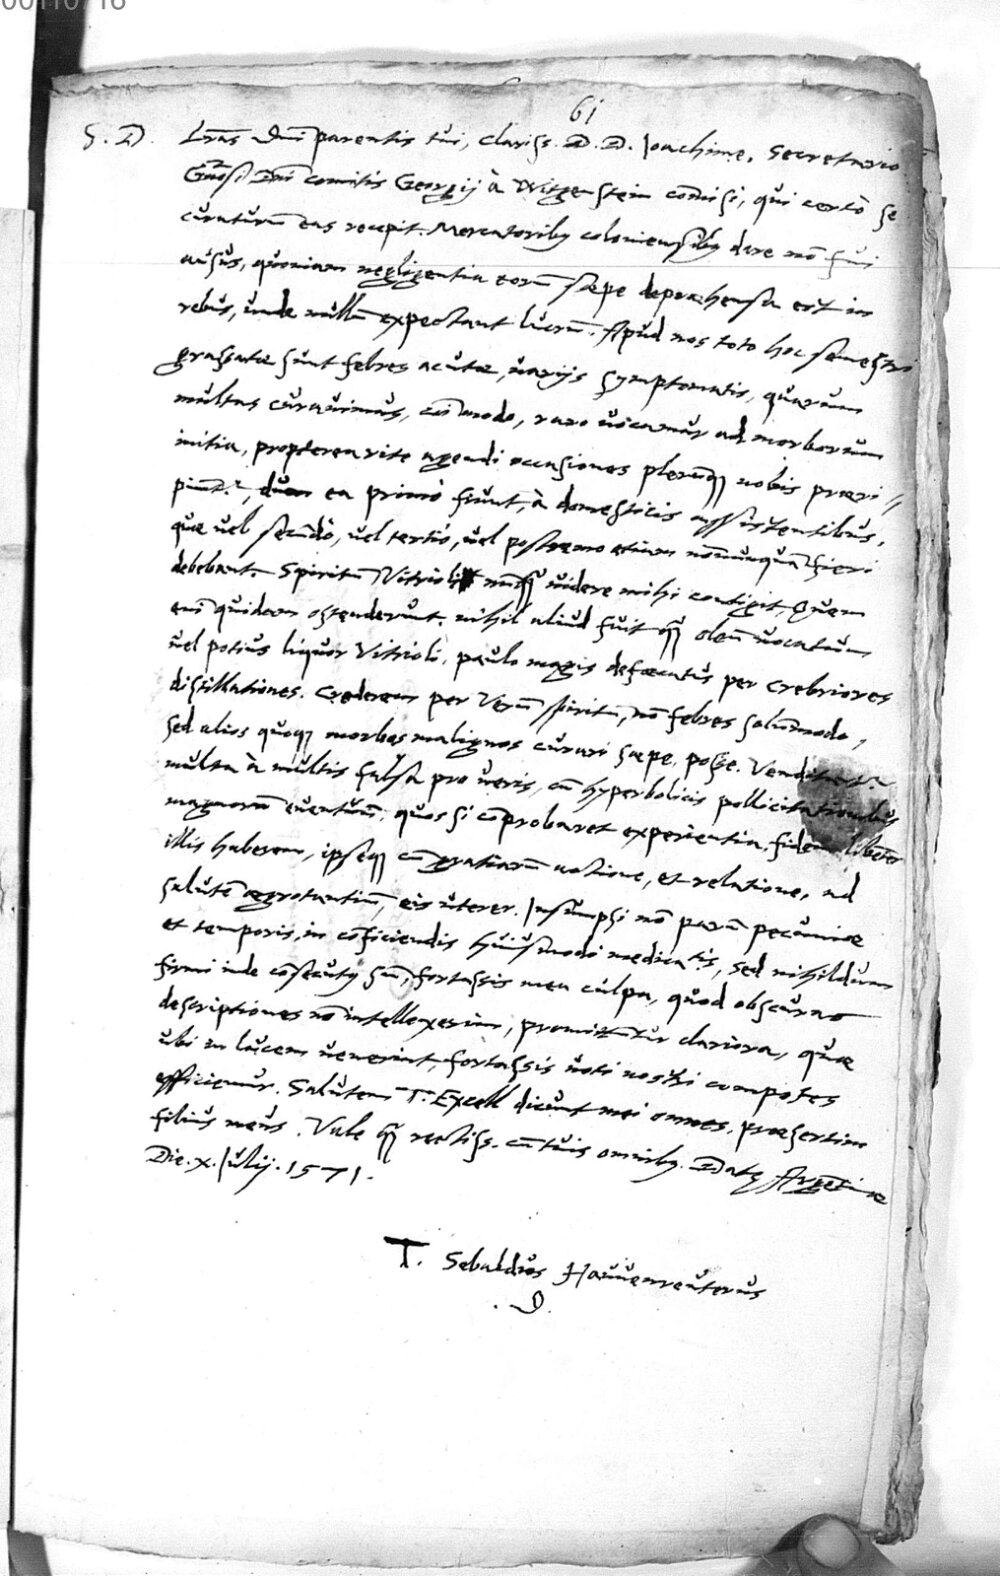 00110716
61
S. D. Lras Dni parentis tui, clariss. D. D. Joachime, Secretario
Gnosi Dni comitis Georgij à Witgenstein comisi, qui certò se
curaturu eas recepit. Mercatoriby coloniensiby dare nō fui
ausus, quoniam negligentia eorū saepe deprehensa est in
rebus, unde nullū expectant lucrū. Apud nos toto hoc semestri
grassatae sunt febres acutae, uarijs symptomatis, quarum
multas curauimus, eò modo, raro uocamur ad morborum
initia, propterea rite agendi occasiones plerūq nobis praeri=
piunt, dum ea primò fiunt, à domesticis assistentibus,
quae uel secūdò, uel tertiò, uel postremo etiam nōnunquā fieri
debebant. Spiritū Vitrioli nūq uidere mihi contigit, Quem
eni quidam ostenderunt, nihil aliud fuit q̄ oleū uocatum
uel potius liquor Vitrioli, paulo magis defoecatus per crebriores
distillationes. Crederem per Verū spiritū, nō febres solūmodo,
sed alios quoq morbos malignos curari saepe posse.
multa à multis falsa pro ueris, cū hyperbolicis pollicitationibus
magnorū euentuū, quos si cōprobaret experientia, fidem libēter
illis haberem, ipseq cū gratiarū actione, et relatione, ad
salutē aegrotantiū, eis uterer. Insumpsi nō parū pecuniae
et temporis, in cōficiendis huiusmodi medicatis, sed nihildum
firmi inde cōsecuty sū, fortassis mea culpa, quod obscuras
descriptiones nō intellexerim, promittuntur clariora, quae
ubi in lucem uenerint, fortassis uoti nostri compotes
efficiemur. Salutem T. Excell dicunt mei omnes, praesertim
filius meus. Vale q̄ rectiss. cū tuis omniby. Daty Argētinae
Die. x. Julij. 1571.
T. Sebaldus Hauuenreuterus
. D.